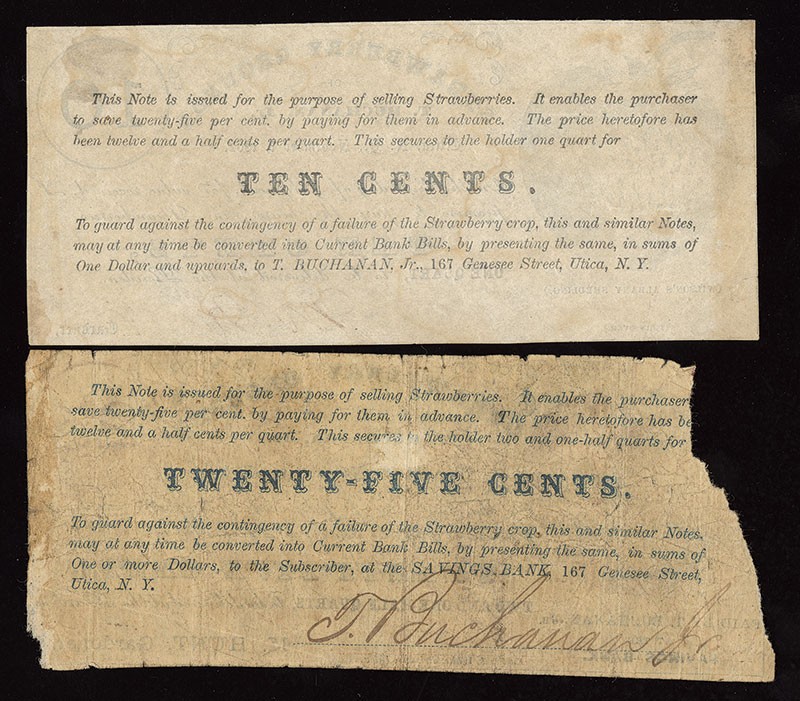 This Note is issued for the purpose of selling Strawberries. It enables the purchaser
to save twenty-five per cent. by paying for them in advance. The price heretofore has
been twelve and a half cents per quart. This secures to the holder one quart for
TEN CENTS.
To guard against the contingency of a failure of the Strawberry crop, this and similar Notes,
may at any time be converted into Current Bank Bills, by presenting the same, in sums of
One Dollar and upwards, to T. BUCHANAN, Jr., 167 Genesee Street, Utica, N. Y.
This Note is issued for the purpose of selling Strawberries. It enables the purchaser
save twenty-five per cent. by paying for them in advance. The price heretofore has be
twelve and a half cents per quart. This secures to the holder two and one-half quarts for
TWENTY-FIVE CENTS.
To guard against the contingency of a failure of the Strawberry crop, this and similar Notes,
may at any time be converted into Current Bank Bills, by presenting the same, in sums of
One or more Dollars, to the Subscriber, at the SAVINGS BANK, 167 Genesee Street,
Utica, N. Y.
T. Buchanan Jr